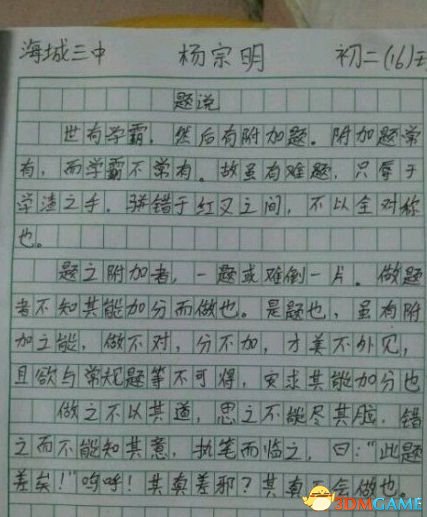 海城三中 杨宗明 初二(16)
题说
世有学霸，然后有附加题。附加题常
有，而学霸不常有。故虽有难题，只辱于
学渣之手，骈错于红叉之间，不以全对称
也。
题之附加者，一题或难倒一片。做题
者不知其能加分而做也。是题也，虽有附
加之能，做不对，分不加，才美不外见，
且欲与常规题等不可得，安求其能加分也
做之不以其道，思之不能尽其脑，错
之而不能知其意，执笔而临之，曰："此题
差矣！"呜呼！其真差邪？其真不会做也
3DMGAME